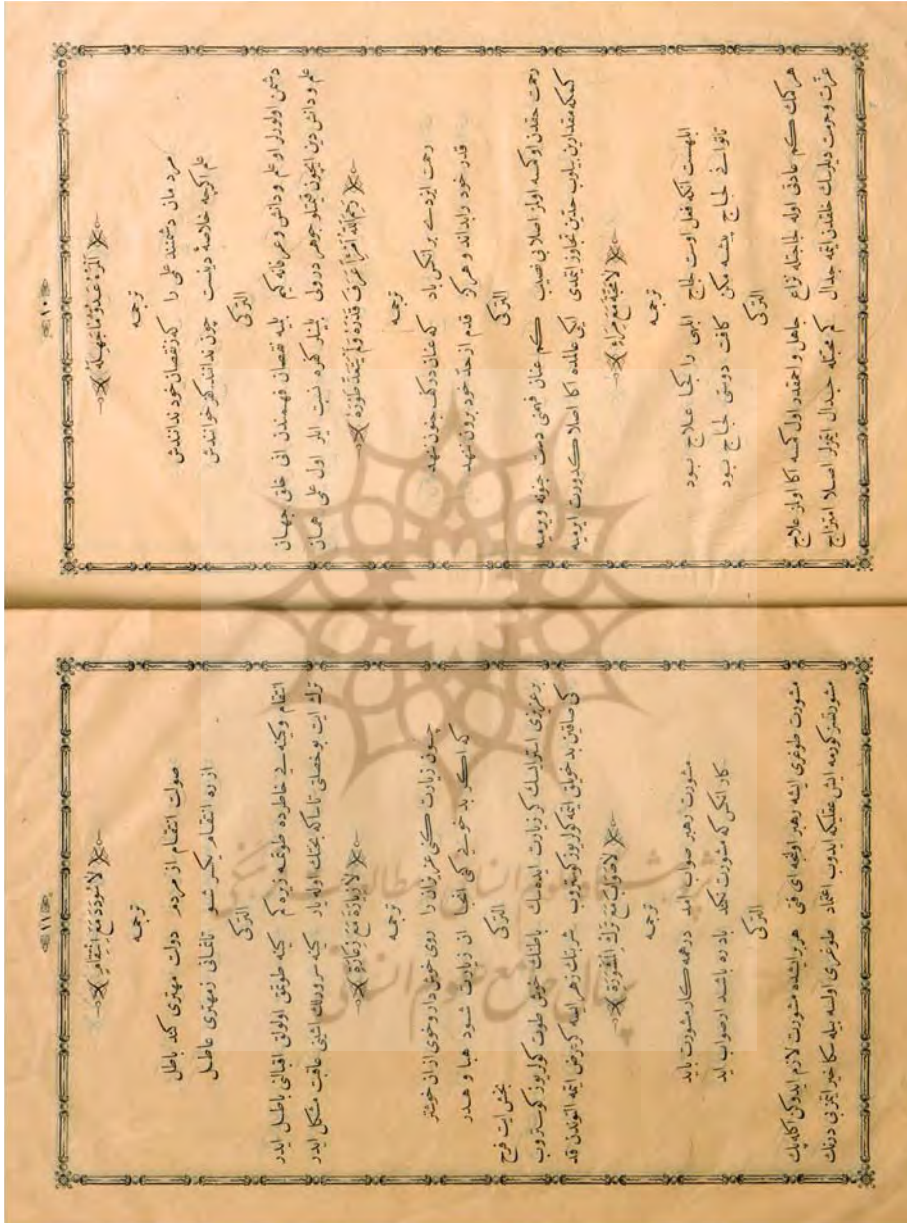 ١٠
اَلْمَرْءُ عَدُوُّ مَا جَهِلَهُ
ترجمه
مردمان دشمنند علمی را کز نقصان خود ندانندش
علم اگرچه خلاصهٔ دینست چون ندانند کفر خوانندش
الترکی
دشمن اولورلر او علم و دانش و عرفانه کیم بلیه نقصان فهمندن انی خلق جهان
علم و دانش دین ایچون قیمتلو جوهر درولی بلینلر کفره نسبت ایلر اول علمی همان
رَحِمَ اللهُ اَمْرَأً عَرَفَ قَدْرَهُ وَلَمْ يَتَعَدَّ طَوْرَهُ
ترجمه
رحمت ایزدے بر انکس باد که عنان در کف جنون ننهد
قدر خود را بداند و هرکز قدم از حد خود برون ننهد
الترکی
رحمت حقدن او کسه اولمز اصلا بی نصیب کم عنان فهمنی دست جنونه ویرمیه
کمکه مقدارین بیلوب حدین تجاوز ایتمدی ایکی عالمده اکا اصلا کدورت ایرمیه
لَا مَحَبَّةَ مَعَ مِرَاءٍ
ترجمه
ابلهست آنکه فعل اوست لجاج ابلهی را کجا علاج بود
تاتوانے لجاج پیشه مکن کافت دوستی لجاج بود
الترکی
هر کمک کم عادتی اوله لجاجتله نزاع جاهل و احمقدر اول کسه اکا اولمز علاج
عزت و حرمت دیلرسک خلقدن ایتمه جدال کم محبتله جدال ایتمزلر اصلا امتزاج
١١
لَا سُودَدَ مَعَ اِنْتِقَامٍ
ترجمه
صولت انتقام از مردم دولت مهتری کند باطل
از ره انتقام یکسر شو تانمانی زمهتری عاطل
الترکی
انتقام و کینه یے خاطرده طوتمه زیره کم کینه طوتمق اولولق اقبالنی باطل ایدر
ترك ایت بو خصلتی تاسکه بختك اوله یار کینه سرورلك اشنی عاقبت مشکل ایدر
لَا زِيَارَةَ مَعَ زَعَارَةٍ
ترجمه
چون زیارت کنی عزیزان را روی خوش دار و خوی ازان خوشتر
که اکر بد خویے کنی انجا ان زیارت شود هبا و هدر
الترکی
بخش ایت فرح
بر عزیزی استر ایسك کر زیارت ایده سك باطنك خوش طوت کولر یوز کوستروب
کی صاقین بد خویلق ایتمه کولر یوز کوستروب
لَا صَوَابَ مَعَ تَرْكِ الْمَشْوَرَةِ
ترجمه
مشورت رهبر صواب امد در همه کار مشورت باید
کار انکس که مشورت نکند باد ره باشد ار صواب اید
الترکی
مشورت طوغری ایشه رهبر اولنجه ای فتی هر بر ایشده مشورت لازم ایدوکن اکله پك
مشورتسز کورمه ایش عقلکه ایدوب اعتماد طوغری اولسه بیله سکا خیر ایتمز بی درنك
پژوهشگاه علوم انسانی و مطالعات فرهنگی
پرتال جامع علوم انسانی